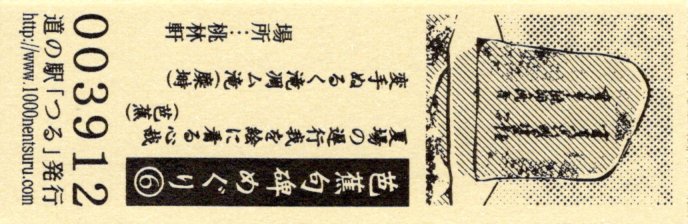 芭蕉句碑めぐり⑥
夏場の遅行我を絵に看る心哉
(芭蕉)
変手ぬるく滝凋ム滝(麋塒)
場所…桃林軒
003912
道の駅「つる」発行
http://www.1000nentsuru.com